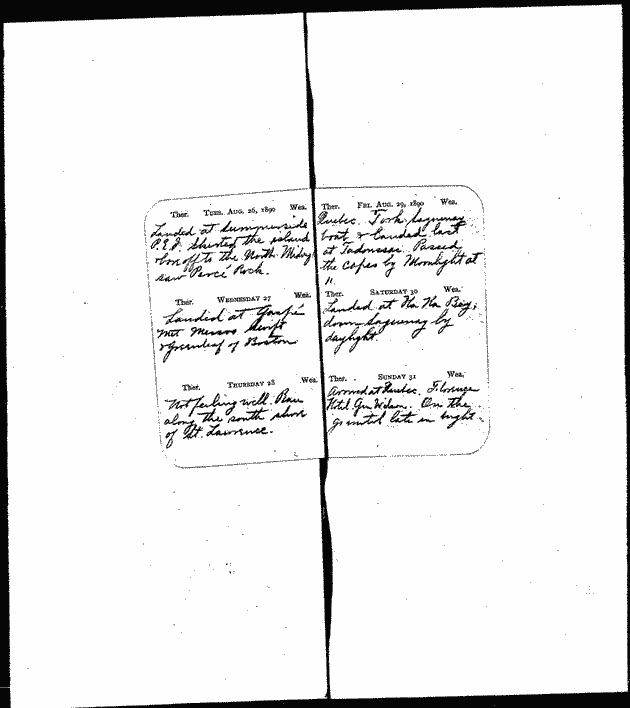 Ther. TUES. AUG. 26, 1890 Wea.
Landed at Summerside
P.E.I. Skirted the island
& bore off to the North.
saw Percé Rock.
Ther. WEDNESDAY 27 Wea.
Landed at Gaspé
Met Messrs Swift
& Greenleaf of Boston
Ther. THURSDAY 28 Wea.
Not feeling well. Ran
along the south shore
of St. Lawrence.
Ther. FRI. AUG. 29, 1890 Wea.
Quebec. Took Saguenay
boat & landed last
at Tadoussac. Passed
the capes by Moonlight at
11.
Ther. SATURDAY 30 Wea.
Landed at Ha Ha Bay,
down Saguenay by
daylight.
Ther. SUNDAY 31 Wea.
Arrived at Quebec. Florence
Hotel. Gen Wilson. On the
until late in night.